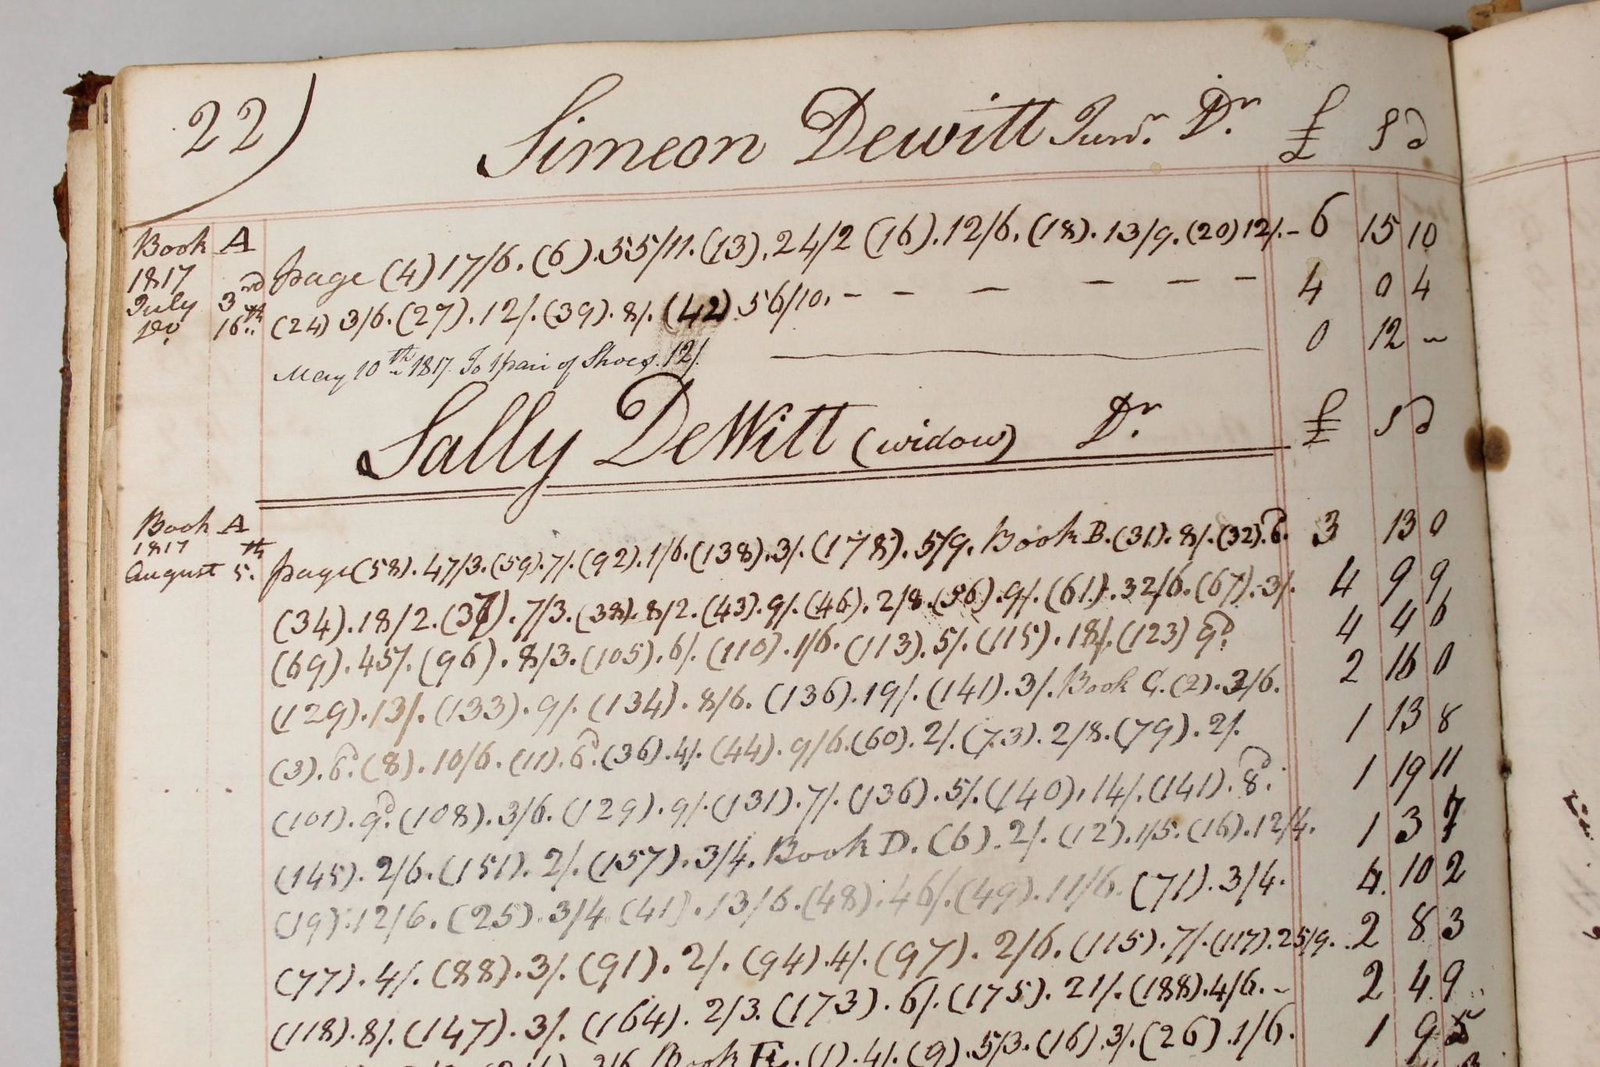 22)
Simeon Dewitt Junr. Dr. £ S d
Book A
1817
July 3rd page (4) 17/6. (6). 55/11. (13). 24/2 (16). 12/6. (18). 13/9. (20) 12/. - 6 15 10
Do. 16th (24) 3/6. (27). 12/. (39). 8/. (42) 56/10. - - - - - - 4 0 4
May 10th 1817. To 1 pair of Shoes. 12/. 0 12 -
Sally DeWitt (widow) Dr. £ S d
Book A
1817
August 5th. page (58). 47/3. (59). 7/. (92). 1/6. (138). 3/. (178). 5/9. Book B. (31). 8/. (32). 6d. 3 13 0
(34). 18/2. (37). 7/3. (38). 8/2. (43). 9/. (46). 2/8. (56). 9/. (61). 32/6. (67). 3/. 4 9 9
(69). 45/. (96). 8/3. (105). 6/. (110). 1/6. (113). 5/. (115). 18/. (123) 9d. 4 4 6
(129). 13/. (133). 9/. (134). 8/6. (136). 19/. (141). 3/. Book C. (2). 3/6. 2 16 0
(3). 6d. (8). 10/6. (11). 6d. (36). 4/. (44). 9/6. (60). 2/. (73). 2/8. (79). 2/. 1 13 8
(101). 9d. (108). 3/6. (129). 9/. (131). 7/. (136). 5/. (140). 14/. (141). 8d. 1 19 11
(145). 2/6. (151). 2/. (157). 3/4. Book D. (6). 2/. (12). 1/5. (16). 12/4. 1 3 7
(19). 12/6. (25). 3/4 (41). 13/6. (48). 46/. (49). 11/6. (71). 3/4. 4. 10 2
(77). 4/. (88). 3/. (91). 2/. (94). 4/. (97). 2/6. (115). 7/. (117). 25/9. 2 8 3
(118). 8/. (147). 3/. (164). 2/3. (173). 6/. (175). 21/. (188). 4/6. - 2 4 9
Book E. (1). 4/. (9). 5/3. (16). 3/. (26). 1/6. 1 9 5